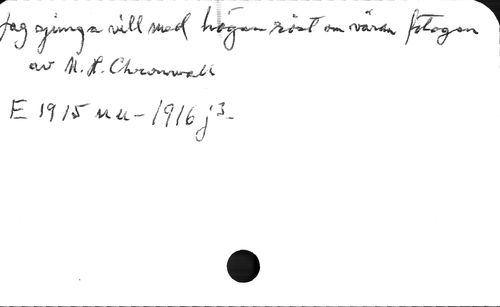 Jag sjunga vill med högan röst om våran fotogen
av N. P. Chronwall
E 1915 nu - 1916 j 3 -